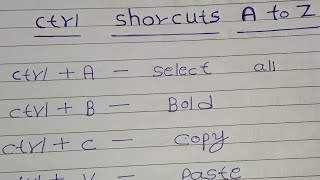 ctrl shorcuts A to Z
ctrl + A – select all
ctrl + B – Bold
ctrl + c – copy
– paste